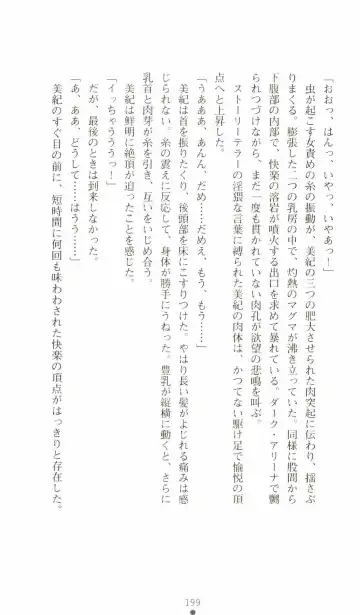 「おおっ、はんっ、いやっ、いやあっ！」
虫が起こす女責めの糸の振動が、美紀の三つの肥大させられた肉突起に伝わり、揺さぶ
りまくる。膨張した二つの乳房の中で、灼熱のマグマが沸き立っていた。同様に股間から
下腹部の内部で、快楽の溶岩が噴火する出口を求めて暴れている。ダーク・アリーナで嬲
られつづけながら、まだ一度も貫かれていない肉孔が欲望の悲鳴を叫ぶ。
ストーリーテラーの淫猥な言葉に縛られた美紀の肉体は、かつてない駆け足で愉悦の頂
点へと上昇した。
「うああぁ、あんん、だめ……だめえ、もう、もう……」
美紀は首を振りたくり、後頭部を床にこすりつけた。やはり長い髪がよじれる痛みは感
じられない。糸の震えに反応して、身体が勝手にうねった。豊乳が縦横に動くと、さらに
乳首と肉芽が糸を引き、互いをいじめ合う。
美紀は鮮明に絶頂が迫ったことを感じた。
「イッちゃうううっ！」
だが、最後のときは到来しなかった。
「あ、ああ、どうして……はうう……」
美紀のすぐ目の前に、短時間に何回も味わわされた快楽の頂点がはっきりと存在した。
199